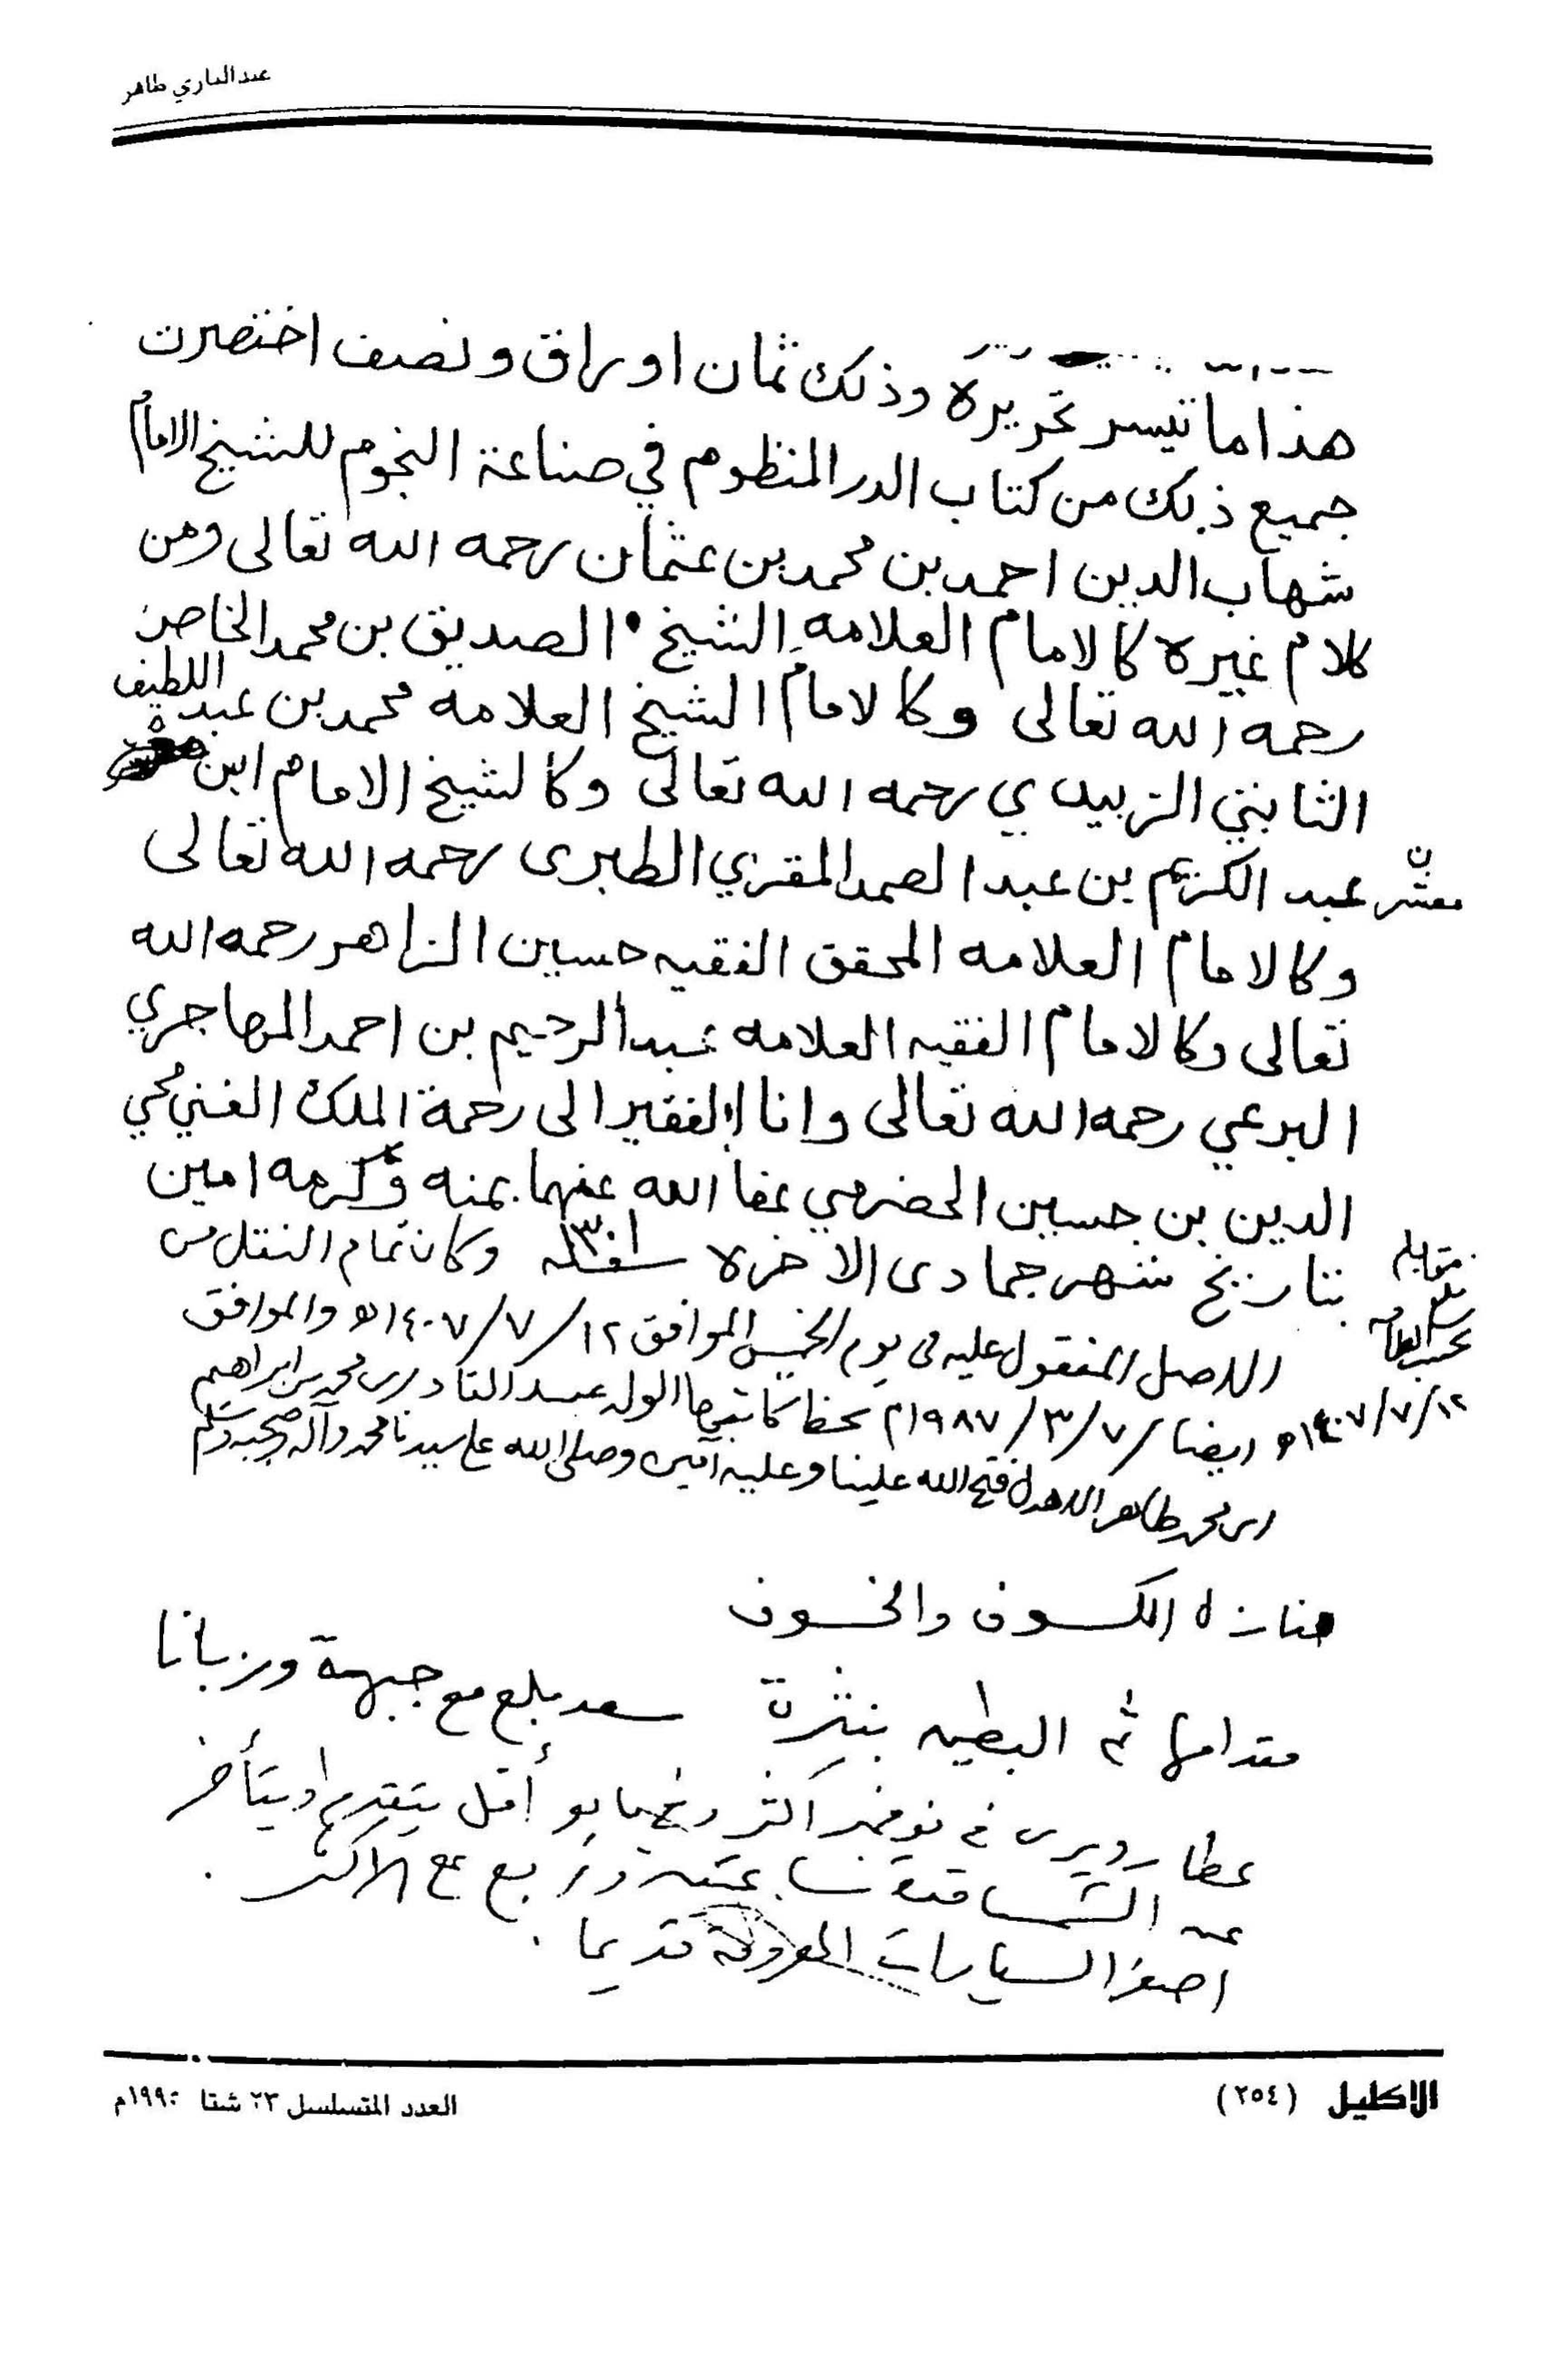 عبدالباري طاهر
هذا ما تيسر تحريره وذلك ثمان اوراق ونصف اختصرت
جميع ذلك من كتاب الدر المنظوم في صناعة النجوم للشيخ الامام
شهاب الدين احمد بن محمد بن عثمان رحمه الله تعالى ومن
كلام غيره كالامام العلامه الشيخ الصديق بن محمد الخاص
رحمه الله تعالى وكالامام الشيخ العلامه محمد بن عبد اللطيف
الثابتي الزبيدي رحمه الله تعالى وكالشيخ الامام ابن
معشر عبد الكريم بن عبد الصمد المقري الطبرى رحمه الله تعالى
وكالامام العلامه المحقق الفقيه حسين الزاهر رحمه الله
تعالى وكالامام الفقيه العلامه عبد الرحيم بن احمد المهاجري
البرعي رحمه الله تعالى وانا الفقير الى رحمة الملك الغني محي
الدين بن حسين الحضرمي عفا الله عنهما بمنه وكرمه امين
بتاريخ شهر جمادى الاخره سنة ١٣٠١ وكان تمام النقل من
الاصل المنقول عليه في يوم الخميس الموافق ١٢/٧/١٤٠٧ه والموافق
ايضا ٧/٣/١٩٨٧م بخط كاتبها الولد عبد القادر بن محمد بن ابراهيم
ابن محمد طاهر الاهدل فتح الله علينا وعليه آمين وصلى الله على سيدنا محمد وآله وصحبه وسلم
١٢/٧/١٤٠٧ه
منازل الكسوف والخسوف
مقدامها ثم البطين بنثرة سعد بلع مع جبهة وزبانا
عطارد يرى في نوفمبر أكثر وفي مايو أقل يتقدم او يتأخر
عن الشمس قدر ساعة وربع على الاكثر .
أصغر السيارات المعروفة قديما .
الاكليل (٢٥٤)
العدد المتسلسل ٢٣ شتا ١٩٩٠م